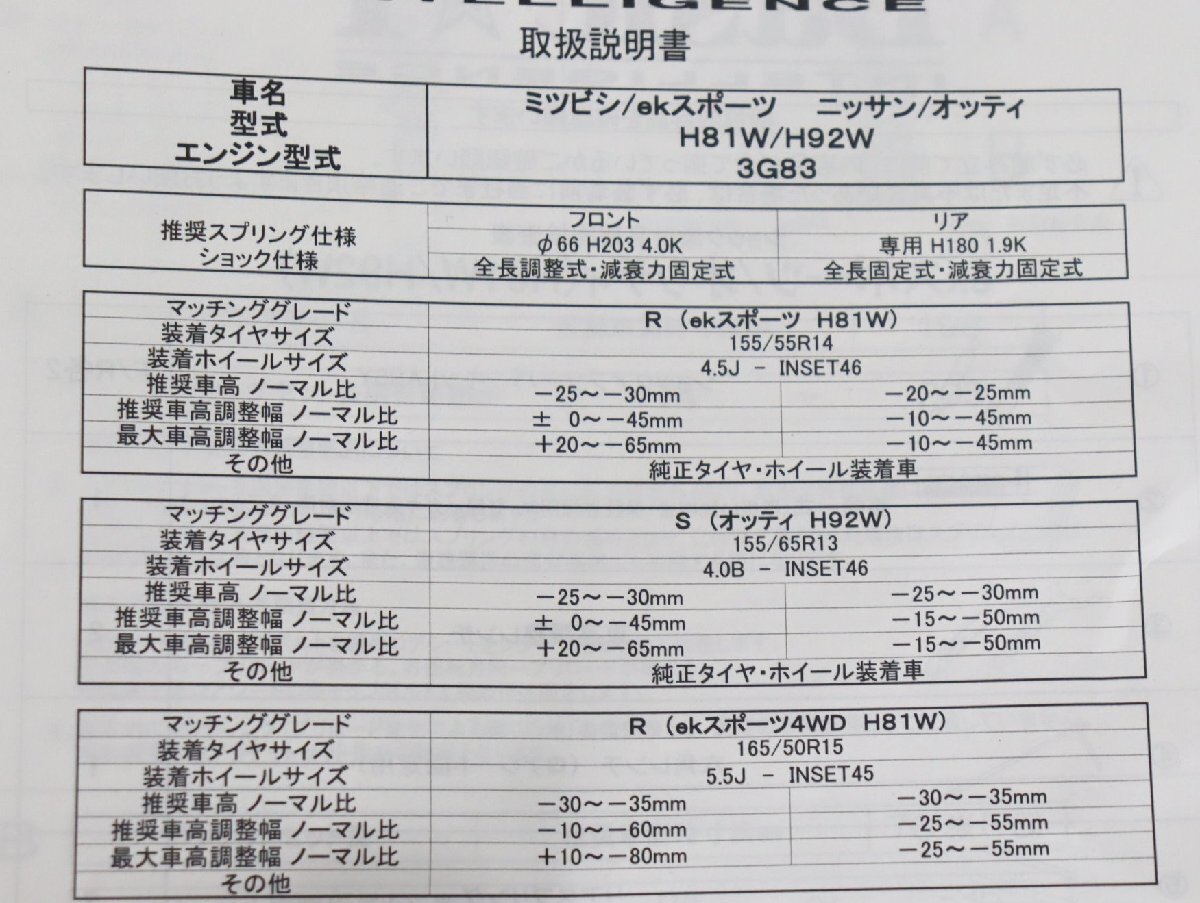 INTELLIGENCE
取扱説明書
車名 ミツビシ/ekスポーツ ニッサン/オッティ
型式 H81W/H92W
エンジン型式 3G83
フロント リア
推奨スプリング仕様 φ66 H203 4.0K 専用 H180 1.9K
ショック仕様 全長調整式・減衰力固定式 全長固定式・減衰力固定式
マッチンググレード R (ekスポーツ H81W)
装着タイヤサイズ 155/55R14
装着ホイールサイズ 4.5J － INSET46
推奨車高 ノーマル比 －25～－30mm －20～－25mm
推奨車高調整幅 ノーマル比 ± 0～－45mm －10～－45mm
最大車高調整幅 ノーマル比 ＋20～－65mm －10～－45mm
その他 純正タイヤ・ホイール装着車
マッチンググレード S (オッティ H92W)
装着タイヤサイズ 155/65R13
装着ホイールサイズ 4.0B － INSET46
推奨車高 ノーマル比 －25～－30mm －25～－30mm
推奨車高調整幅 ノーマル比 ± 0～－45mm －15～－50mm
最大車高調整幅 ノーマル比 ＋20～－65mm －15～－50mm
その他 純正タイヤ・ホイール装着車
マッチンググレード R (ekスポーツ4WD H81W)
装着タイヤサイズ 165/50R15
装着ホイールサイズ 5.5J － INSET45
推奨車高 ノーマル比 －30～－35mm －30～－35mm
推奨車高調整幅 ノーマル比 －10～－60mm －25～－55mm
最大車高調整幅 ノーマル比 ＋10～－80mm －25～－55mm
その他